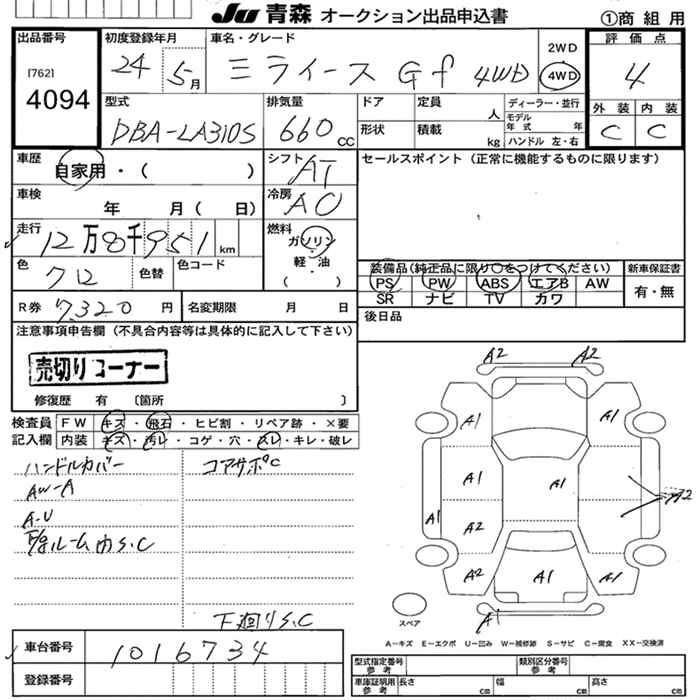 JU 青森 オークション出品申込書
①商 組 用
出品番号
[762]
4094
初度登録年月
24 5月
車名・グレード
ミライース Gf 4WD
2WD
4WD
評 価 点
4
外 装 内 装
C C
型式
DBA-LA310S
排気量
660 cc
ドア
形状
定員 人
積載 kg
ディーラー・並行
モデル年式 年
ハンドル 左・右
車歴
自家用・( )
シフト
AT
セールスポイント(正常に機能するものに限ります)
車検
年 月( 日)
冷房
AC
走行
12万8千951 km
燃料
ガソリン
軽・油
( )
色
クロ
色替
色コード
装備品(純正品に限り○をつけてください)
新車保証書
PS PW ABS エアB AW
SR ナビ TV カワ
有・無
R券 7,320円
名変期限 月 日
後日品
注意事項申告欄(不具合内容等は具体的に記入して下さい)
売切りコーナー
修復歴 有 〔箇所 〕
検査員記入欄
FW キズ・飛石・ヒビ割・リペア跡・×要
内装 キズ・汚レ・コゲ・穴・スレ・キレ・破レ
ハンドルカバー
コアサポC
AW-A
A-U
ルーム内S.C
下廻りS.C
A2 A2
A1 A1
A1 A1
A1 A2 A2
A2 A1 A1
A1
スペア
A-キズ E-エクボ U-凹み W-補修跡 S-サビ C-腐食 XX-交換済
車台番号
1016734
登録番号
型式指定番号
参考
類別区分番号
参考
車庫証明用
参考
長さ cm
幅 cm
高さ cm